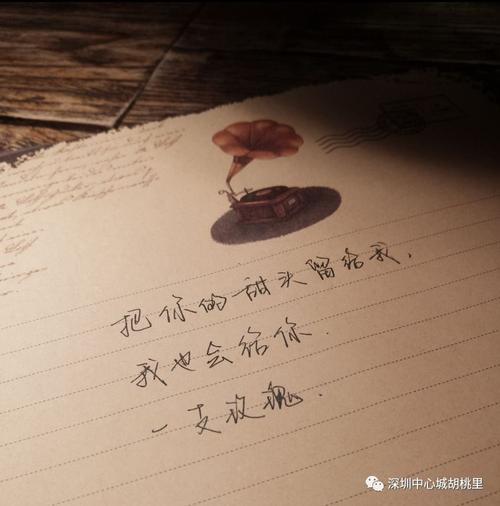 把你的甜头留给我,
我也会给你.
一支玫瑰.
深圳中心城胡桃里